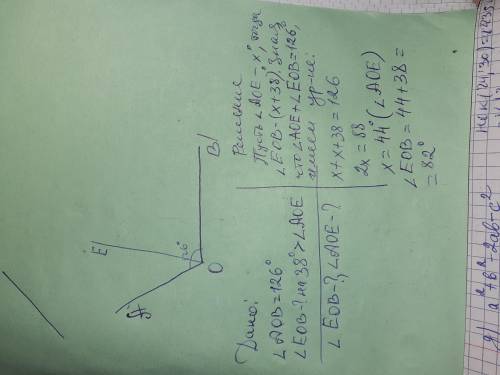 A
E
B
O
126°
Дано:
∠AOB=126°
∠EOB-? на 38°>∠AOE
∠EOB-?, ∠AOE-?
Решение
Пусть ∠AOE-x°, тогда
∠EOB-(x+38)°. Зная,
что ∠AOE+∠EOB=126,
имеем ур-не:
x+x+38=126
2x=88
x=44°(∠AOE)
∠EOB=44+38=
=82°
a²+b²+2ab-c²